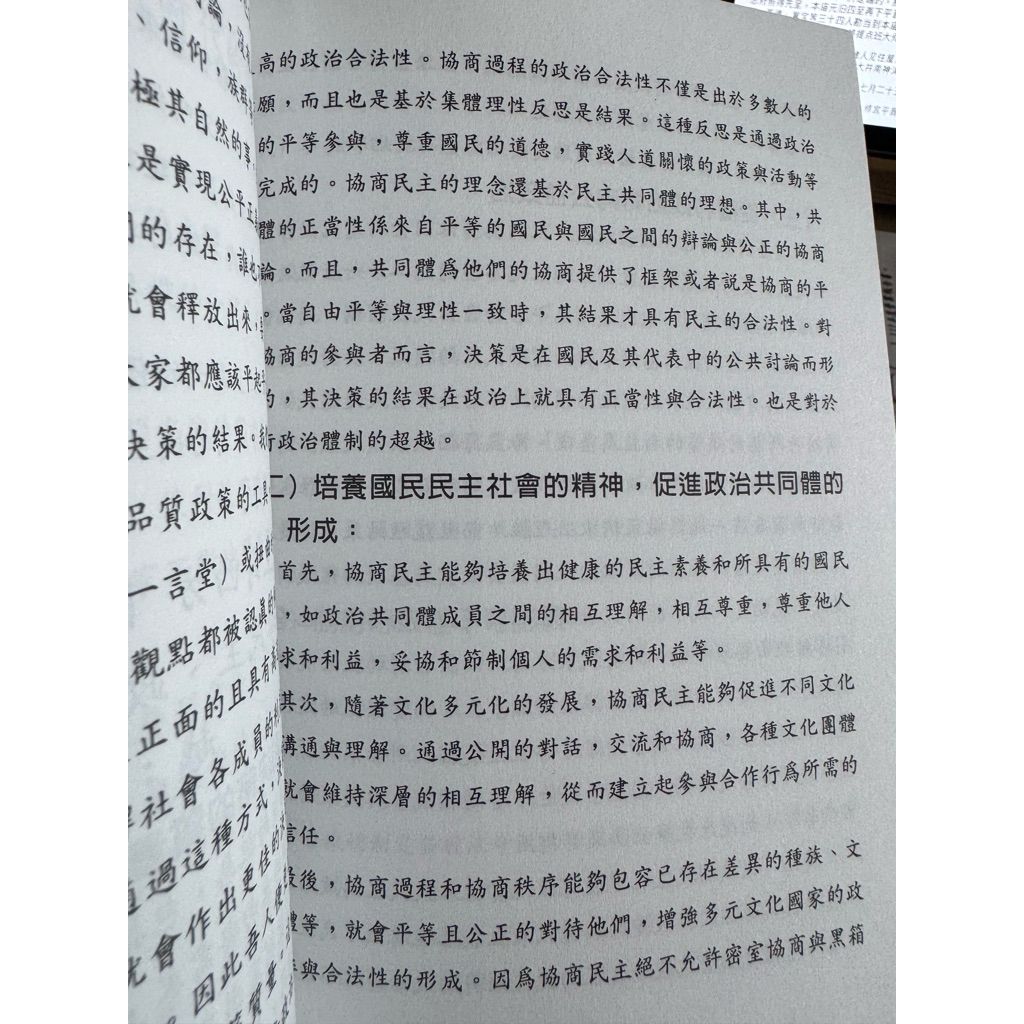 高的政治合法性。協商過程的政治合法性不僅是出於多數人的
願，而且也是基於集體理性反思是結果。這種反思是通過政治
的平等參與，尊重國民的道德，實踐人道關懷的政策與活動等
完成的。協商民主的理念還基於民主共同體的理想。其中，共
體的正當性係來自平等的國民與國民之間的辯論與公正的協商
論。而且，共同體爲他們的協商提供了框架或者説是協商的平
。當自由平等與理性一致時，其結果才具有民主的合法性。對
協商的參與者而言，決策是在國民及其代表中的公共討論而形
的，其決策的結果在政治上就具有正當性與合法性。也是對於
行政治體制的超越。
二）培養國民民主社會的精神，促進政治共同體的
形成：
首先，協商民主能夠培養出健康的民主素養和所具有的國民
，如政治共同體成員之間的相互理解，相互尊重，尊重他人
求和利益，妥協和節制個人的需求和利益等。
其次，隨著文化多元化的發展，協商民主能夠促進不同文化
溝通與理解。通過公開的對話，交流和協商，各種文化團體
就會維持深層的相互理解，從而建立起參與合作行爲所需的
信任。
最後，協商過程和協商秩序能夠包容已存在差異的種族、文
體等，就會平等且公正的對待他們，增強多元文化國家的政
與合法性的形成。因爲協商民主絕不允許密室協商與黑箱
、信仰，族群
極其自然的事
是實現公平正
的存在，誰也
會釋放出來，
大家都應該平起
決策的結果。我
品質政策的工具
一言堂）或扭曲
觀點都被認眞的
正面的且具有
社會各成員的
過這種方式，
會作出更佳的
因此吾人
質量。